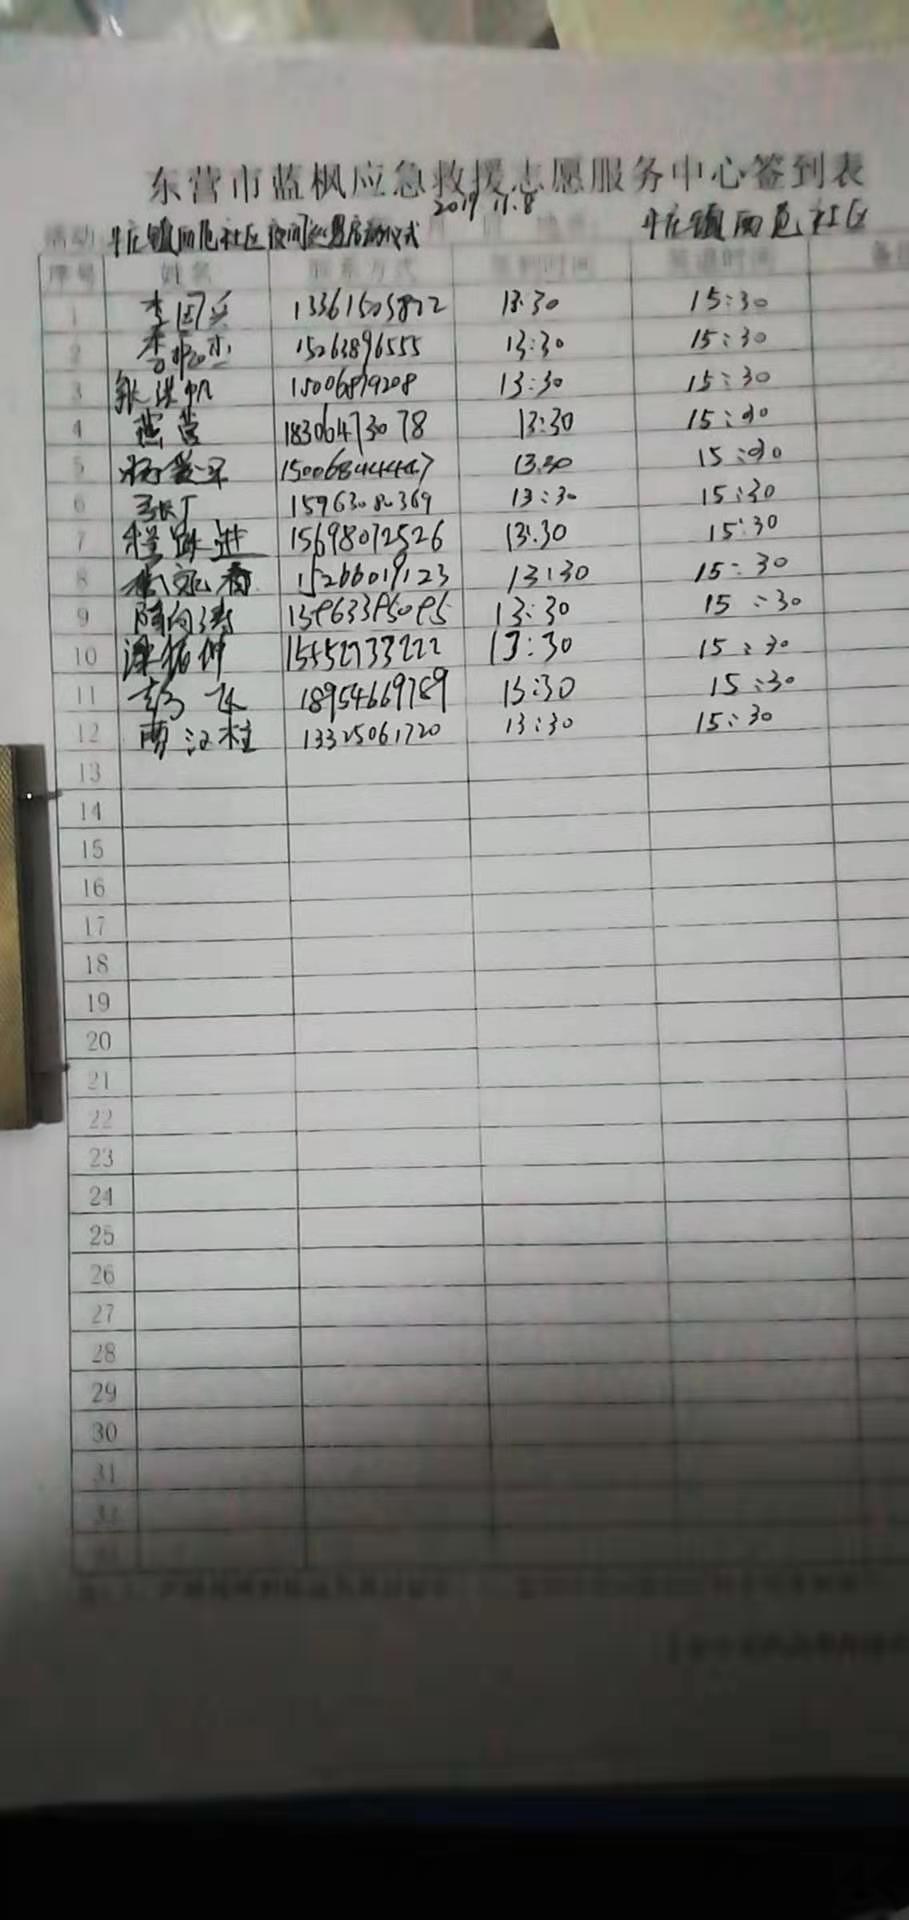 东营市蓝枫应急救援志愿服务中心签到表
2019 11.8
活动 牛庄镇西范社区夜间巡逻启动仪式 月 日 地点: 牛庄镇西范社区
序号 姓名 联系方式 签到时间 签退时间 备注
1 李国兵 13361505822 13:30 15:30
2 李 15263896555 13:30 15:30
3 张洪帆 15006879208 13:30 15:30
4 燕营 18306473078 13:30 15:30
5 15006844447 13:30 15:30
6 张丁 15963080369 13:30 15:30
7 程跃进 15698072526 13:30 15:30
8 15266019123 13:30 15:30
9 隋向涛 13963395095 13:30 15:30
10 15552733222 13:30 15:30
11 彭飞 18954669789 13:30 15:30
12 贾汉柱 13325061720 13:30 15:30
13
14
15
16
17
18
19
20
21
22
23
24
25
26
27
28
29
30
31
32
33